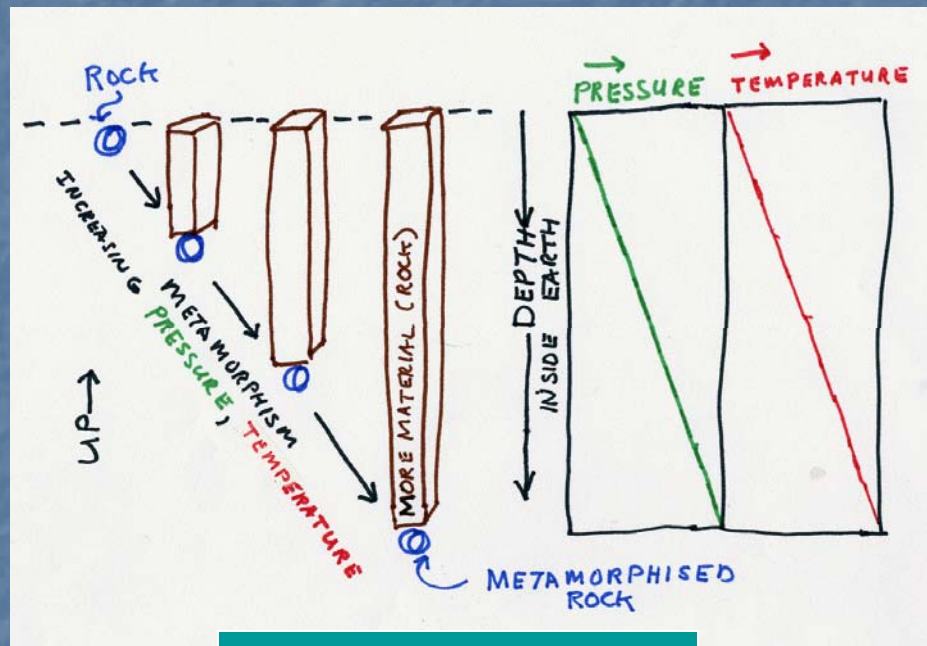 ROCK
INCREASING METAMORPHISM
PRESSURE, TEMPERATURE
UP
MORE MATERIAL (ROCK)
METAMORPHISED
ROCK
DEPTH
INSIDE EARTH
PRESSURE
TEMPERATURE